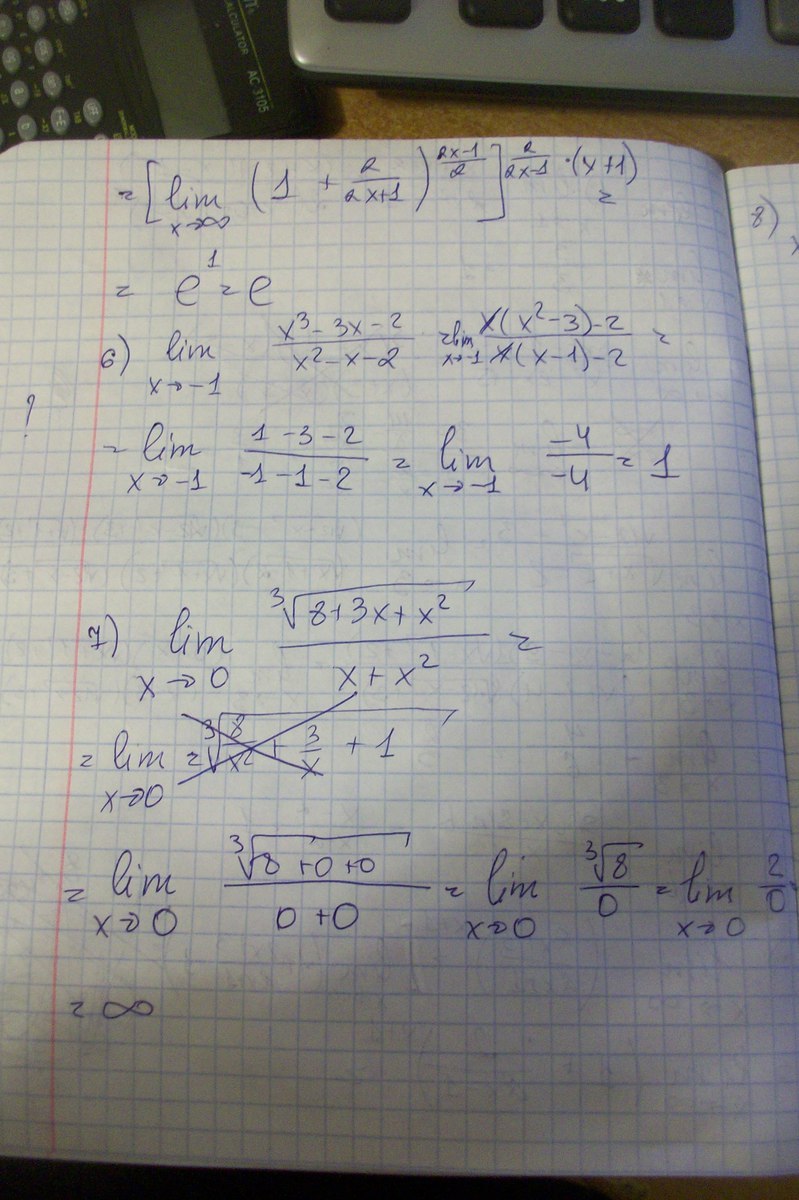 CALCULATOR AC 3105
= [lim x→∞ (1 + 2/(2x+1))^((2x-1)/2)]^(2/(2x-1) · (x+1)) =
= e^1 = e
8)
6) lim x→-1 (x³ - 3x - 2)/(x² - x - 2) = lim x→-1 (x(x² - 3) - 2)/(x(x - 1) - 2) =
?
= lim x→-1 (1 - 3 - 2)/(-1 - 1 - 2) = lim x→-1 (-4)/(-4) = 1
7) lim x→0 ∛(8 + 3x + x²)/(x + x²) =
= lim x→0 = ∛(8/x² + 3/x + 1)
= lim x→0 ∛(8 + 0 + 0)/(0 + 0) = lim x→0 ∛8/0 = lim x→0 2/0
= ∞